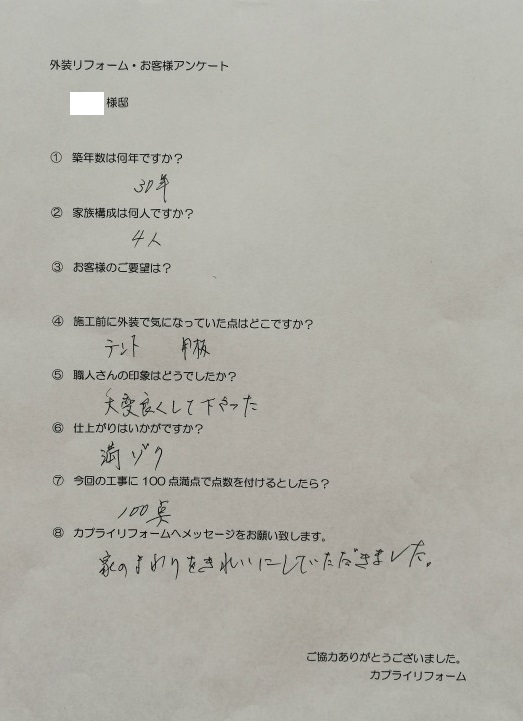 外装リフォーム・お客様アンケート
様邸
① 築年数は何年ですか？
30年
② 家族構成は何人ですか？
4人
③ お客様のご要望は？
④ 施工前に外装で気になっていた点はどこですか？
テント 板
⑤ 職人さんの印象はどうでしたか？
大変良くして下さった
⑥ 仕上がりはいかがですか？
満ゾク
⑦ 今回の工事に100点満点で点数を付けるとしたら？
100点
⑧ カブライリフォームへメッセージをお願い致します。
家のまわりをきれいにしていただきました。
ご協力ありがとうございました。
カブライリフォーム